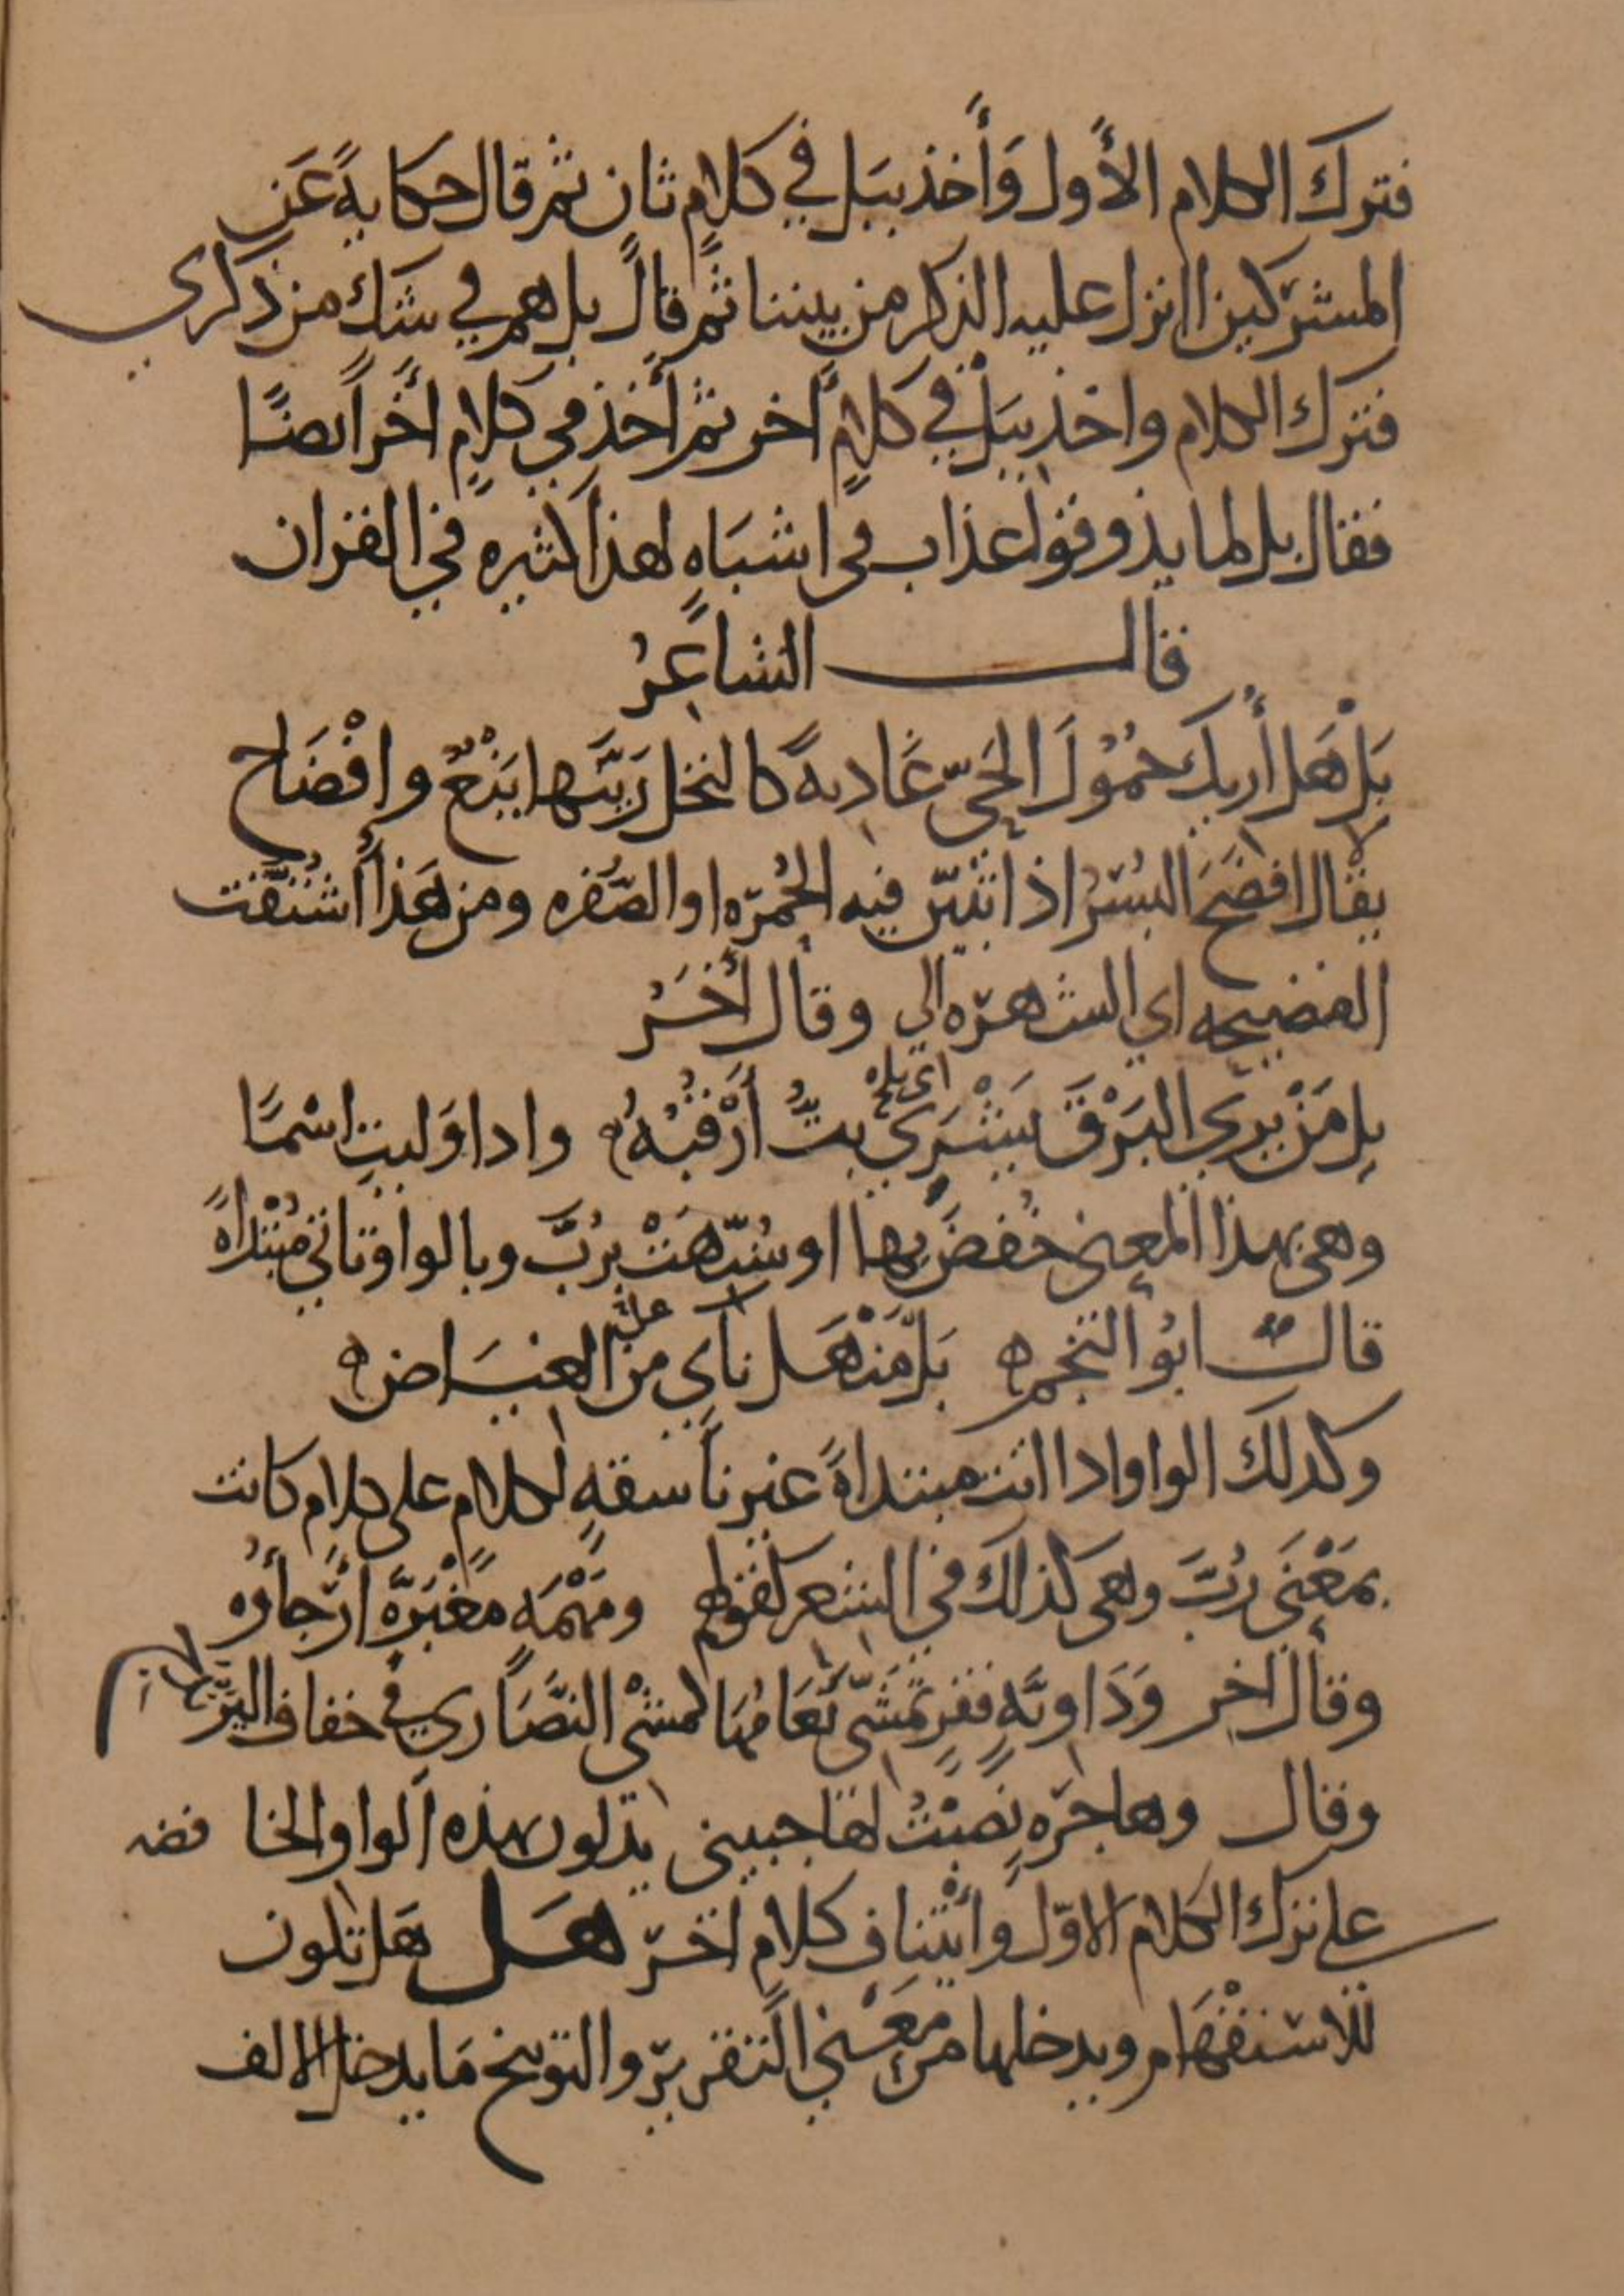 فترك الكلام الأول وَأَخذ ببَل في كلامٍ ثان ثم قال حكايةً عَن
المشركين اانزل عليه الذكر من بيننا ثم قال بل هم في شك من ذكري
فترك الكلام واخذ ببَلْ في كلامٍ أخر ثم أخذ في كلامٍ أخر ايضًا
فقال بل لما يذوقوا عذاب في اشبَاهٍ لهذا كثيره في القران
قال الشاعِرُ
بَلْ هَل أُريكَ حُمُوْلَ الحَيّ غَاديةً كالنخل زَيَّنها يَنْعٌ وافْضَاح
يقال افضَحَ البُسْرُ اذا تبيّن فيه الحُمرَه او الصُّفره ومن هَذا أُشتُقّت
الفضيحه اي الشهرَه الي وقال أَخَرُ
بل مَنْ يري البَرْقَ يَشْرَي بتُّ أَرْقُبُهُ واداوَليتِ اسْمًا
اي يلح
وهي بهذا المعني خُفِضَ بها او شُبّهَتْ برُبَّ وبالواو تاتي مُبْتداةً
قال ابُو النجم بَل مَنْهَل ناي من الغيَاض
علي
وكذلك الواو اذا اتت مبتداةً غير ناسقةٍ لكلامٍ علي كلام كانت
بمَعْنَي رُبَّ وهي كذلك في الشعر كقولهم ومَهْمَهٍ مَغْبَرَّه ارْجأوُه
وقال اخر وَدَاويَّهٍ قفرٍ تمَشّي نَعَامُها كمشْي النَّصَاري في خفاف اليَرَ
وقال وهاجرَه نَصَبْتُ لها جبيني يدلون بهذه الواو الخا فضه
علي ترك الكلام الاوّل وأئتناف كلام اخَرَ هَل هَل تكون
للاستفْهَام ويدخلها من مَعْني التقرير والتوبيخ مَا يدخل الالف